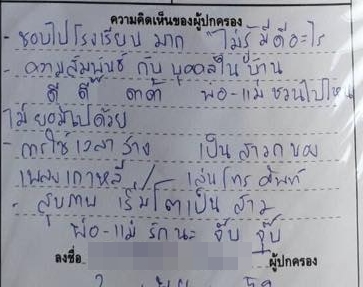 ความคิดเห็นของผู้ปกครอง
- ชอบไปโรงเรียน มาก ไม่รู้ มีดีอะไร
- ความสัมพันธ์ กับ บุคคลใน บ้าน
ดี๊ ดี๊ ดาด้า พ่อ-แม่ ชวนไปไหน
ไม่ ยอมไปด้วย
- การใช้ เวลา ว่าง เป็น สาวก ของ
เพลง เกาหลี / เล่น โทร ศัพท์
- สุขภาพ เริ่ม โต เป็น สาว
พ่อ-แม่ รัก นะ จุ๊บ จุ๊บ
ลงชื่อ ผู้ปกครอง